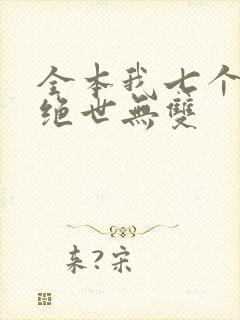 全本我七个
绝世無雙
来?宋